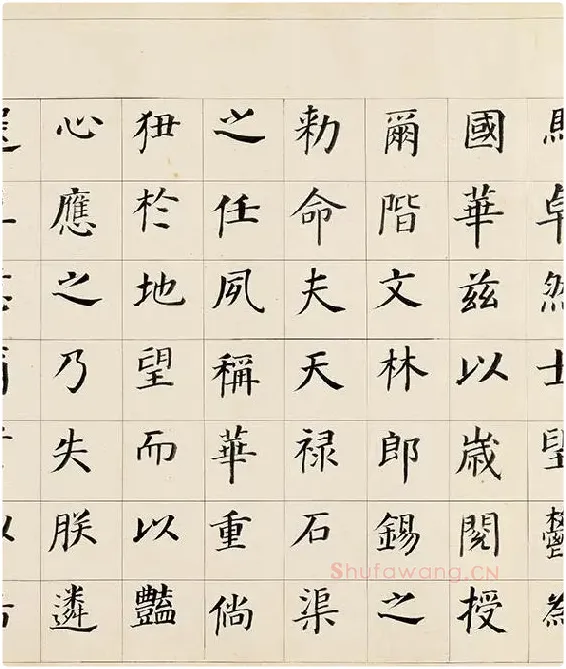 卓然士望鬱為
國華茲以歳閱授
爾階文林郎錫之
勅命夫天禄石渠
之任夙稱華重倘
狃於地望而以豔
心應之乃失朕遴
Shufawang.CN